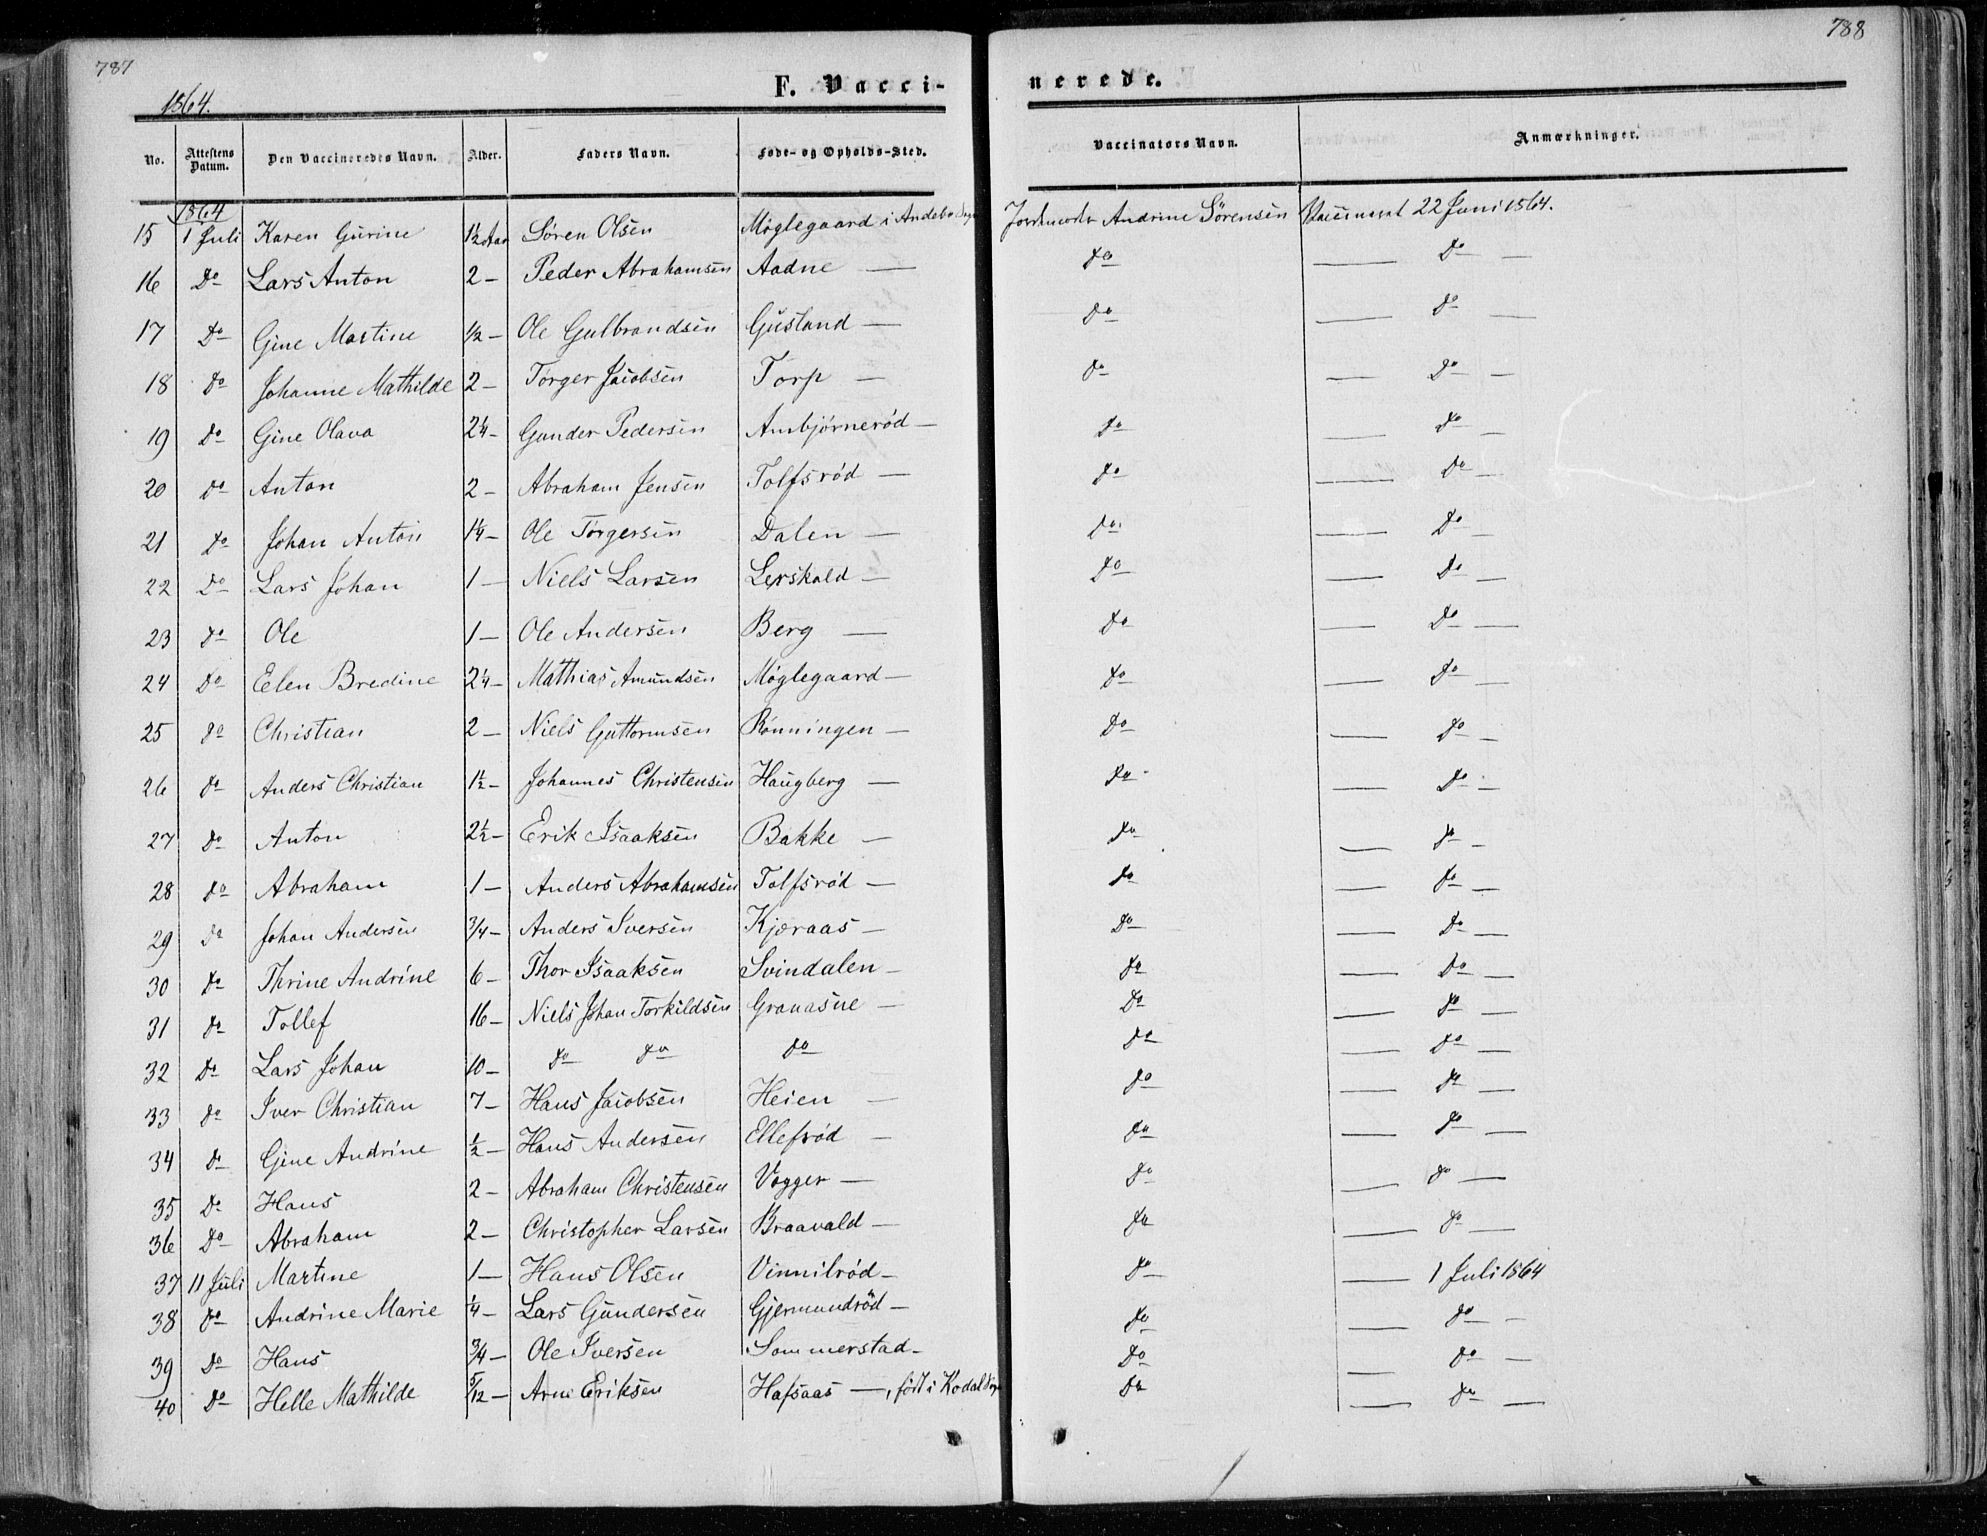 787
788
1864.
F. Vacci-
nerede.
No. Attestens Datum. Den Vaccineredes Navn. Alder. Faders Navn. Føde- og Opholds-Sted. Vaccinators Navn. Anmærkninger.
1864
15 1 Juli Karen Gurine 1½ Aar Søren Olsen Møglegaard i Andebo Sogn Jordemoder Andrine Sørensen Vaccineret 22 Juni 1864.
16 Do Lars Anton 2 — Peder Abrahamsen Aadne — Do — Do —
17 Do Gine Martine 1/2 — Ole Gulbrandsen Gusland — Do — Do —
18 Do Johanne Mathilde 2 — Torger Jacobsen Torp — Do — Do —
19 Do Gine Olava 2¼ — Gunder Pedersen Ambjørnerød — Do — Do —
20 Do Anton 2 — Abraham Jensen Tolfsrød — Do — Do —
21 Do Johan Anton 1¼ — Ole Torgersen Dalen — Do — Do —
22 Do Lars Johan 1 — Niels Larsen Lerskald — Do — Do —
23 Do Ole 1 — Ole Andersen Berg — Do — Do —
24 Do Eelen Bredine 2¼ — Mathias Amundsen Møglegaard — Do — Do —
25 Do Christian 2 — Niels Guttormsen Rønningen — Do — Do —
26 Do Anders Christian 1½ — Johannes Christensen Haugberg — Do — Do —
27 Do Anton 2½ — Erik Isaaksen Bakke — Do — Do —
28 Do Abraham 1 — Anders Abrahamsen Tolfsrød — Do — Do —
29 Do Johan Andersen 3/4 — Anders Iversen Kjæraas — Do — Do —
30 Do Thrine Andrine 6 — Thor Isaaksen Svindalen — Do — Do —
31 Do Tollef 16 — Niels Johan Torkildsen Granasne — Do — Do —
32 Do Lars Johan 10 — Do Do Do Do — Do —
33 Do Iver Christian 7 — Hans Jacobsen Heien — Do — Do —
34 Do Gine Andrine ½ — Hans Andersen Ellefrød — Do — Do —
35 Do Hans 2 — Abraham Christensen Vegger — Do — Do —
36 Do Abraham 2 — Christopher Larsen Braavald — Do — Do —
37 11 Juli Martine 1 — Hans Olsen Vinnilrød — Do — 1 Juli 1864
38 Do Andrine Marie ¼ — Lars Gundersen Gjermundrød — Do — Do —
39 Do Hans 3/4 — Ole Iversen Sommerstad — Do — Do —
40 Do Helle Mathilde 5/12 — Arne Eriksen Hafsaas —, født i Kodal Sogn Do — Do —